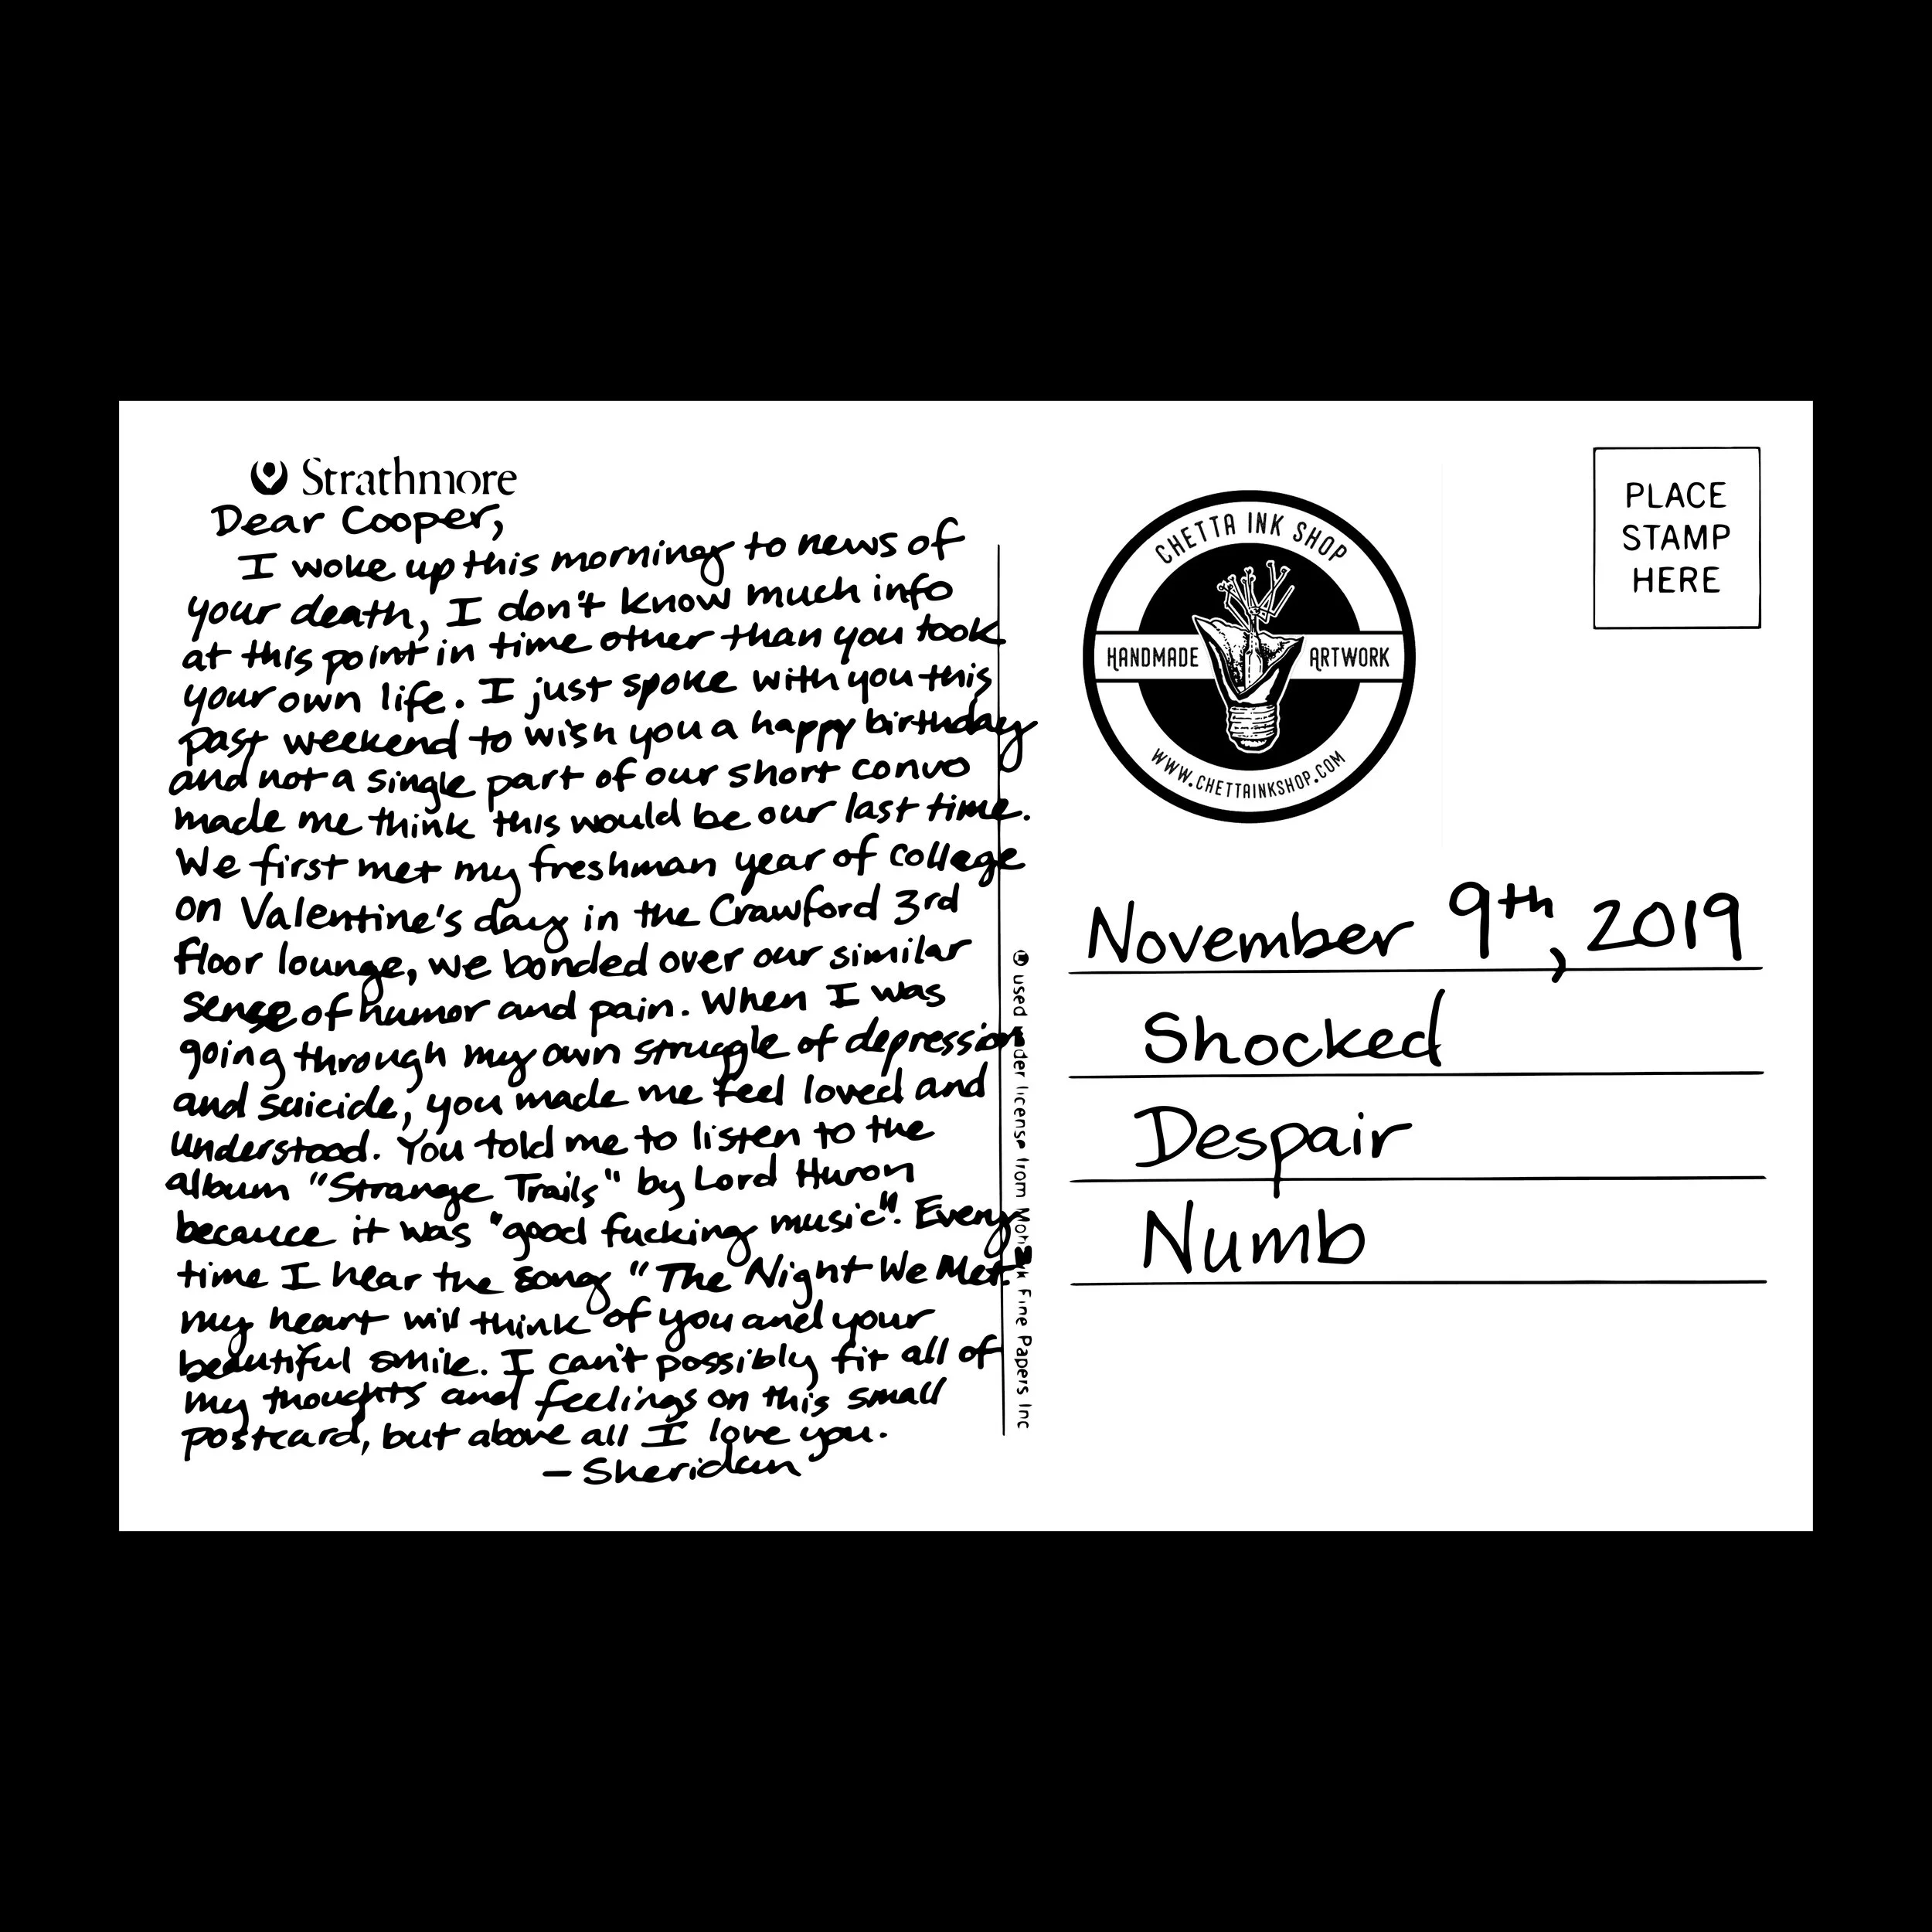 Strathmore
Dear Cooper,
I woke up this morning to news of
your death, I don't know much info
at this point in time other than you took
your own life. I just spoke with you this
past weekend to wish you a happy birthday
and not a single part of our short convo
made me think this would be our last time.
We first met my freshman year of college
on Valentine's day in the Crawford 3rd
floor lounge, we bonded over our similar
sense of humor and pain. When I was
going through my own struggle of depression
and suicide, you made me feel loved and
understood. You told me to listen to the
album "Strange Trails" by Lord Huron
because it was "good fucking music". Every
time I hear the song "The Night We Met
my heart will think of you and your
beautiful smile. I can't possibly fit all of
my thoughts and feelings on this small
postcard, but above all I love you.
- Sheridan
used under license from Mohawk Fine Papers Inc
CHETTA INK SHOP
HANDMADE ARTWORK
WWW.CHETTAINKSHOP.COM
PLACE
STAMP
HERE
November 9th, 2019
Shocked
Despair
Numb